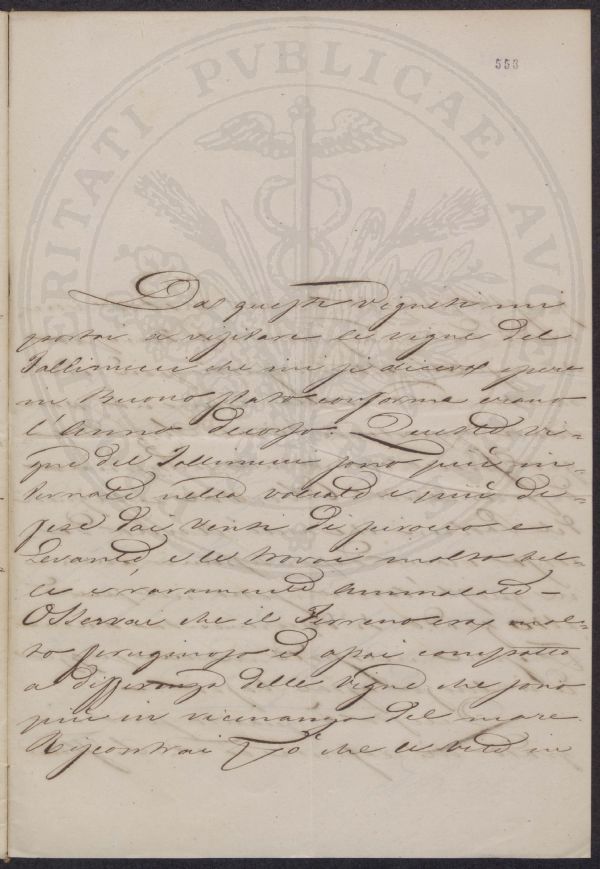 553
VERITATI PVBLICAE AVCEN
Da questi vigneti mi
portai a visitare le vigne del
Tallinucci che mi si diceva essere
in Buono stato conforme erano
l'Anno decorso. Queste vi-
gne del Tallinucci sono più in-
ternate nella vallata e più di-
fese dai venti di sirocco e
Levante e le trovai molto bel-
le e raramente ammalate -
Osservai che il Terreno era mol-
to feruginoso ed assai compatto
a differenza delle vigne che sono
più in vicinanza del mare.
Riscontrai che le vite in